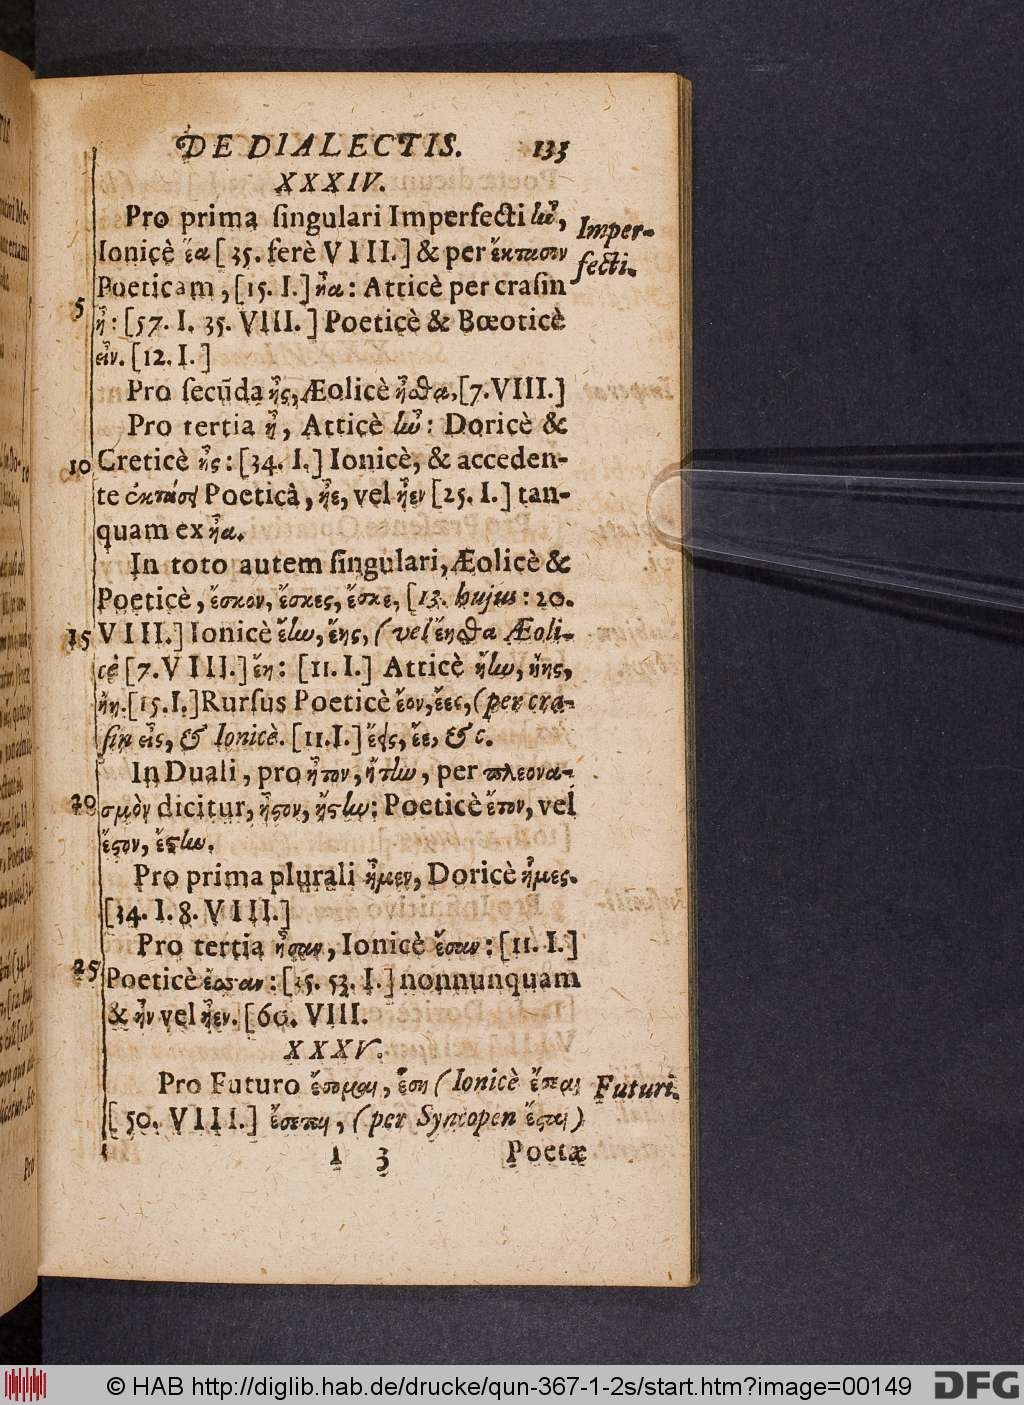 DE DIALECTIS. 133
XXXIV.
Pro prima singulari Imperfecti ἦν,
Imper-
fecti.
Ionicè ἔα [35. ferè VIII.] & per ἔκτασιν
Poeticam, [15. I.] ἦα: Atticè per crasin
5
ἦ: [57. I. 35. VIII.] Poeticè & Bœoticè
εἶν. [12. I.]
Pro secūda ἦς, Æolicè ἦσθα, [7. VIII.]
Pro tertia ἦ, Atticè ἦν: Doricè &
10 Creticè ἦς: [34. I.] Ionicè, & acceden-
te ἐκτάσει Poeticâ, ἦε, vel ἦεν [25. I.] tan-
quam ex ἦα.
In toto autem singulari, Æolicè &
Poeticè, ἔσκον, ἔσκες, ἔσκε, [13. hujus: 20.
15 VIII.] Ionicè ἔην, ἔης, (vel ἔησθα Æoli-
cè [7. VIII.] ἔη: [11. I.] Atticè ἤην, ἤης,
ἤη. [15. I.] Rursus Poeticè ἔον, ἔες, (per cra-
sin εἶς, & Ionicè. [11. I.] ἔεις, ἔε, &c.
In Duali, pro ἦτον, ἤτην, per πλεονα-
20 σμὸν dicitur, ἦστον, ἤστην: Poeticè ἔτον, vel
ἔστον, ἔστην.
Pro prima plurali ἦμεν, Doricè ἦμες.
[34. I. 8. VIII.]
Pro tertia ἦσαν, Ionicè ἔσαν: [11. I.]
25 Poeticè ἔσσαν: [35. 53. I.] nonnunquam
& ἦν vel ἦεν. [60. VIII.
XXXV.
Pro Futuro ἔσομαι, ἔση (Ionicè ἔσεαι
Futuri.
[50. VIII.] ἔσεται, (per Syncopen ἔσται)
I 3 Poetæ
© HAB http://diglib.hab.de/drucke/qun-367-1-2s/start.htm?image=00149 DFG